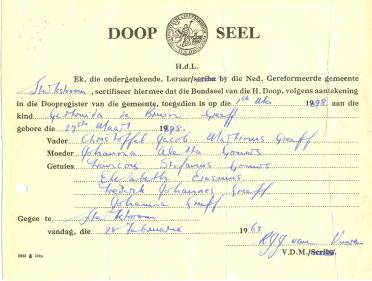 DOOP SEEL
H.d.L.
Ek, die ondergetekende, Leraar/scriba by die Ned. Gereformeerde gemeente
Sterkstroom, sertifiseer hiermee dat die Bondseel van die H. Doop, volgens aantekening
in die Doopregister van die gemeente, toegedien is op die 1ste Mei 1898 aan die
kind Gertruida de Bruin Graaff
gebore die 27ste Maart 1898.
Vader Christoffel Jacob Mathinus Graaff
Moeder Johanna Aletta Gouws
Getuies Francois Stefanus Gouws
Elizabeth Erasmus
Frederik Johannes Graaff
Johanna Graaff
Gegee te Sterkstroom
vandag, die 28 Februarie 1963
van
V.D.M./Scriba.